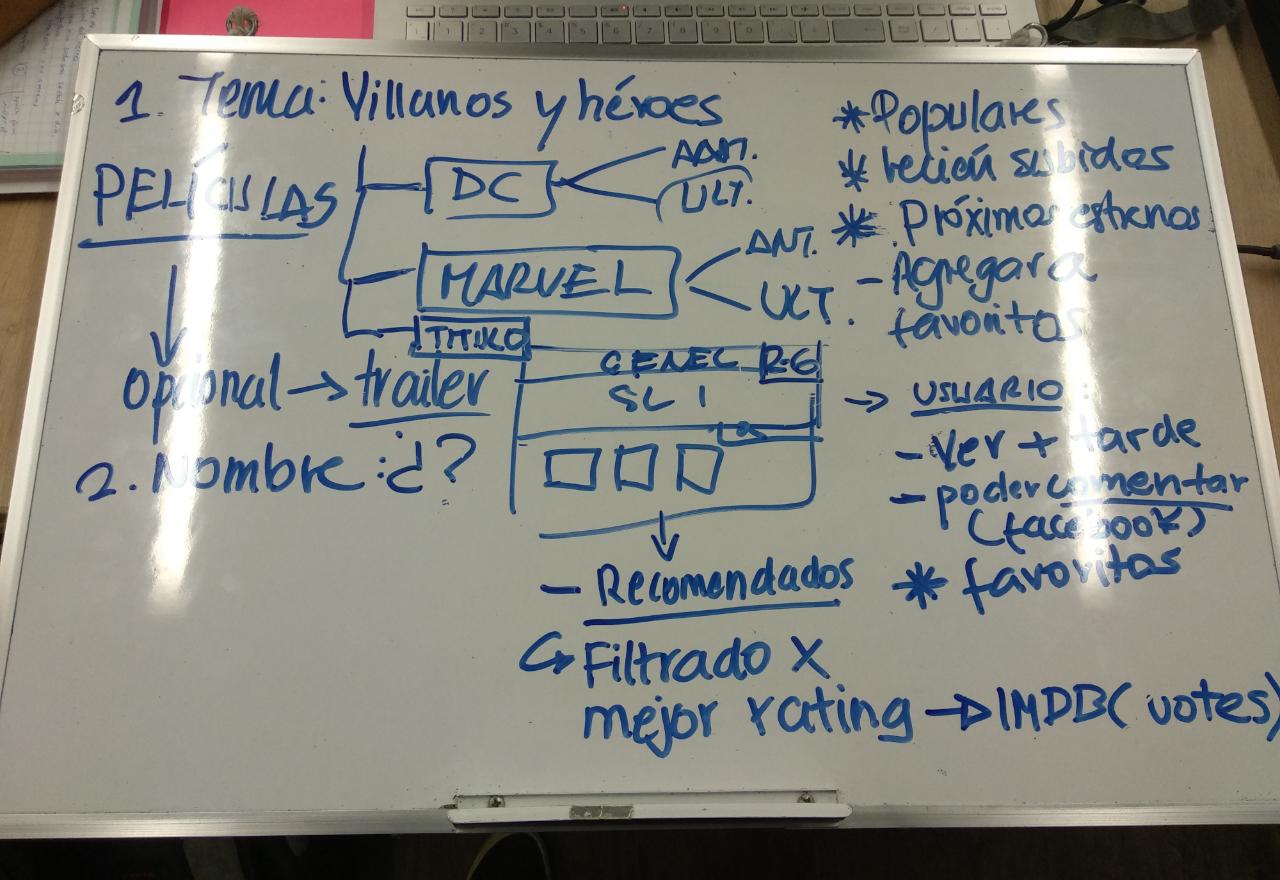 1. Tema: Villanos y héroes
PELÍCULAS
DC
ANT.
ULT.
MARVEL
ANT.
ULT.
opcional → trailer
2. Nombre: ¿?
SL 1
- Recomendados
Filtrado X
mejor rating → IMDB (votes)
* Populares
* recién subidas
* Próximos estrenos
- Agregar a
favoritos
→ USUARIO:
- Ver + tarde
- poder comentar
(facebook)
* favoritos